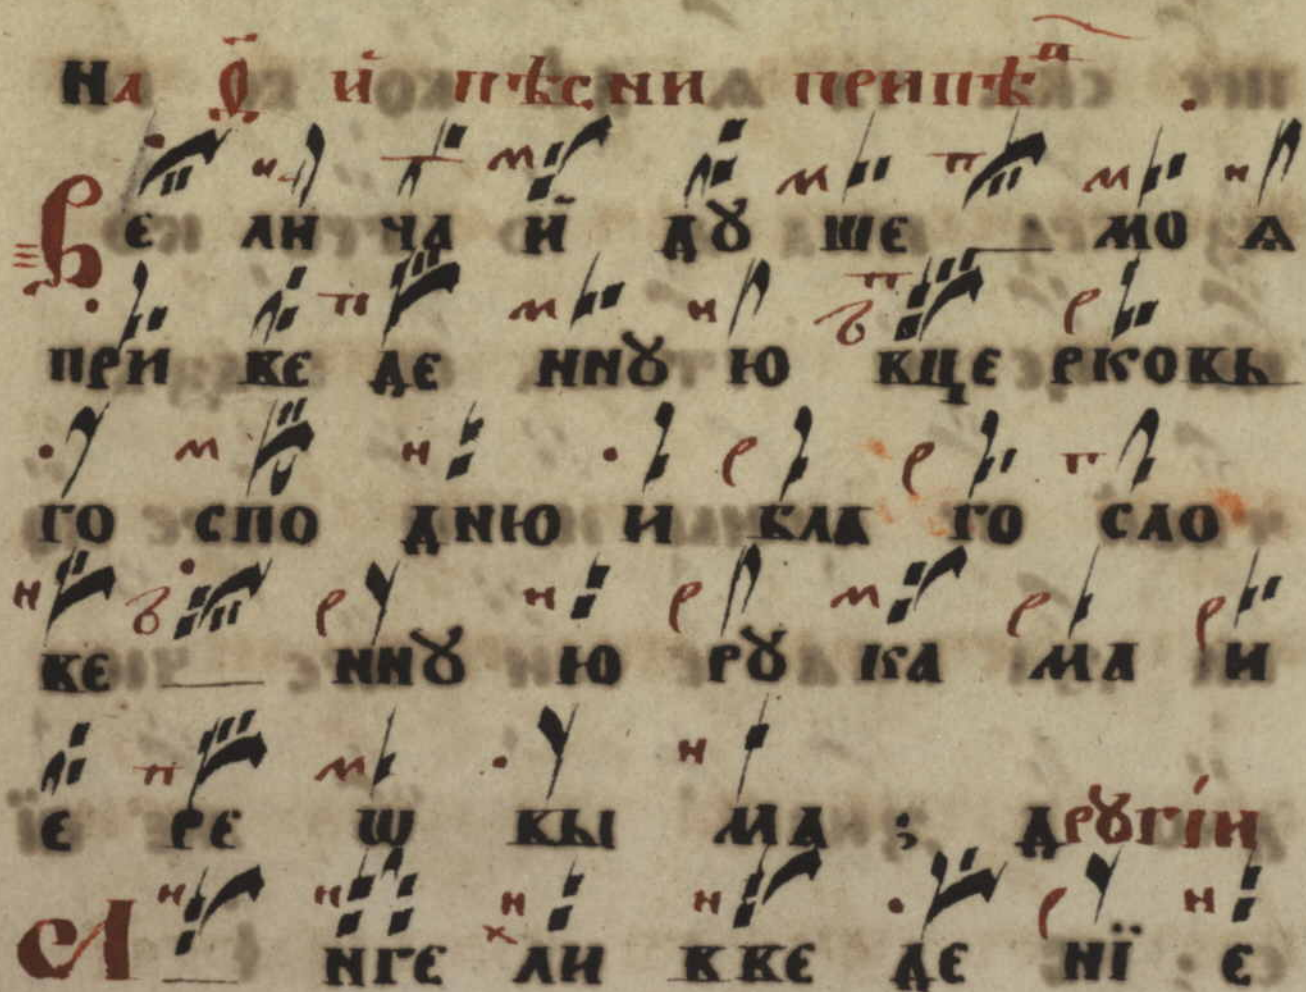 На ѳ҃ й пѣсни припѣⷧ
Ве ли ча й дꙋ ше мо ѧ
при ве де ннꙋ ю вце рковь
го спо дню и бла го сло
ве ннꙋ ю рꙋ ка ма и
е ре ѡ вы ма : дрꙋгі́и
А нге ли вве де нї е